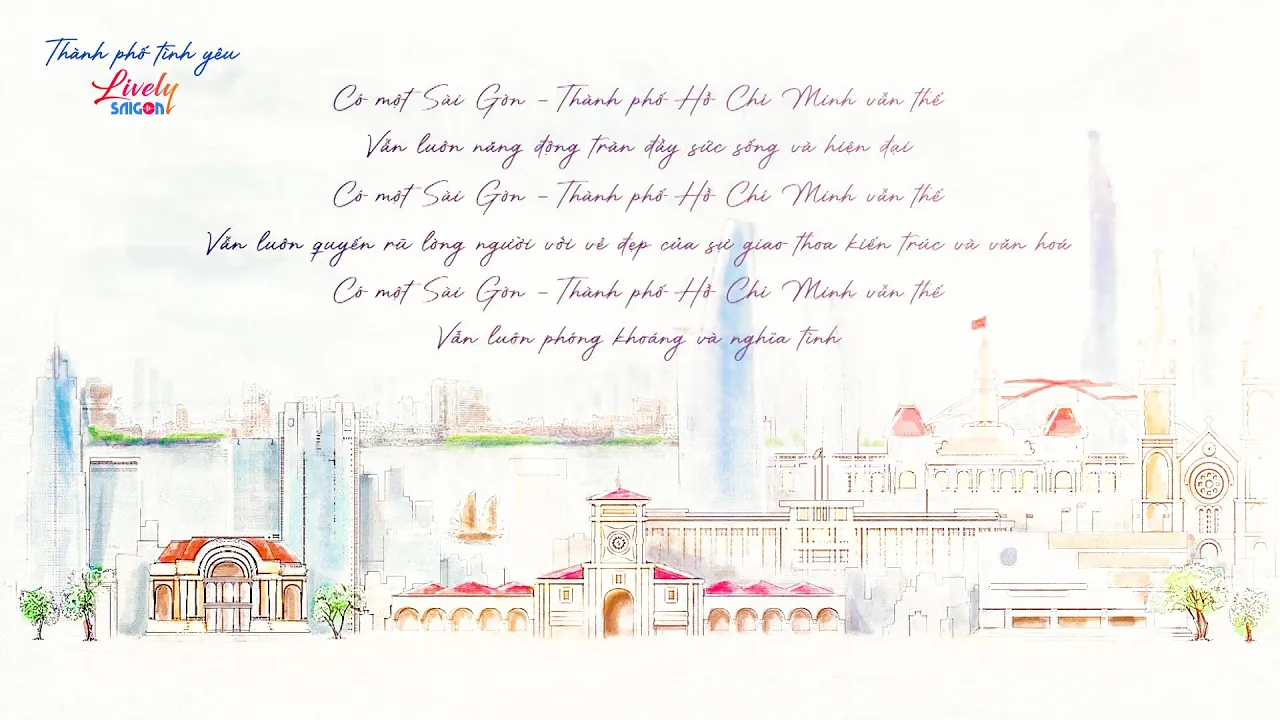 Thành phố tình yêu
Lively
SAIGON
Có một Sài Gòn - Thành phố Hồ Chí Minh vẫn thế
Vẫn luôn năng động tràn đầy sức sống và hiện đại
Có một Sài Gòn - Thành phố Hồ Chí Minh vẫn thế
Vẫn luôn quyến rũ lòng người với vẻ đẹp của sự giao thoa kiến trúc và văn hoá
Có một Sài Gòn - Thành phố Hồ Chí Minh vẫn thế
Vẫn luôn phóng khoáng và nghĩa tình